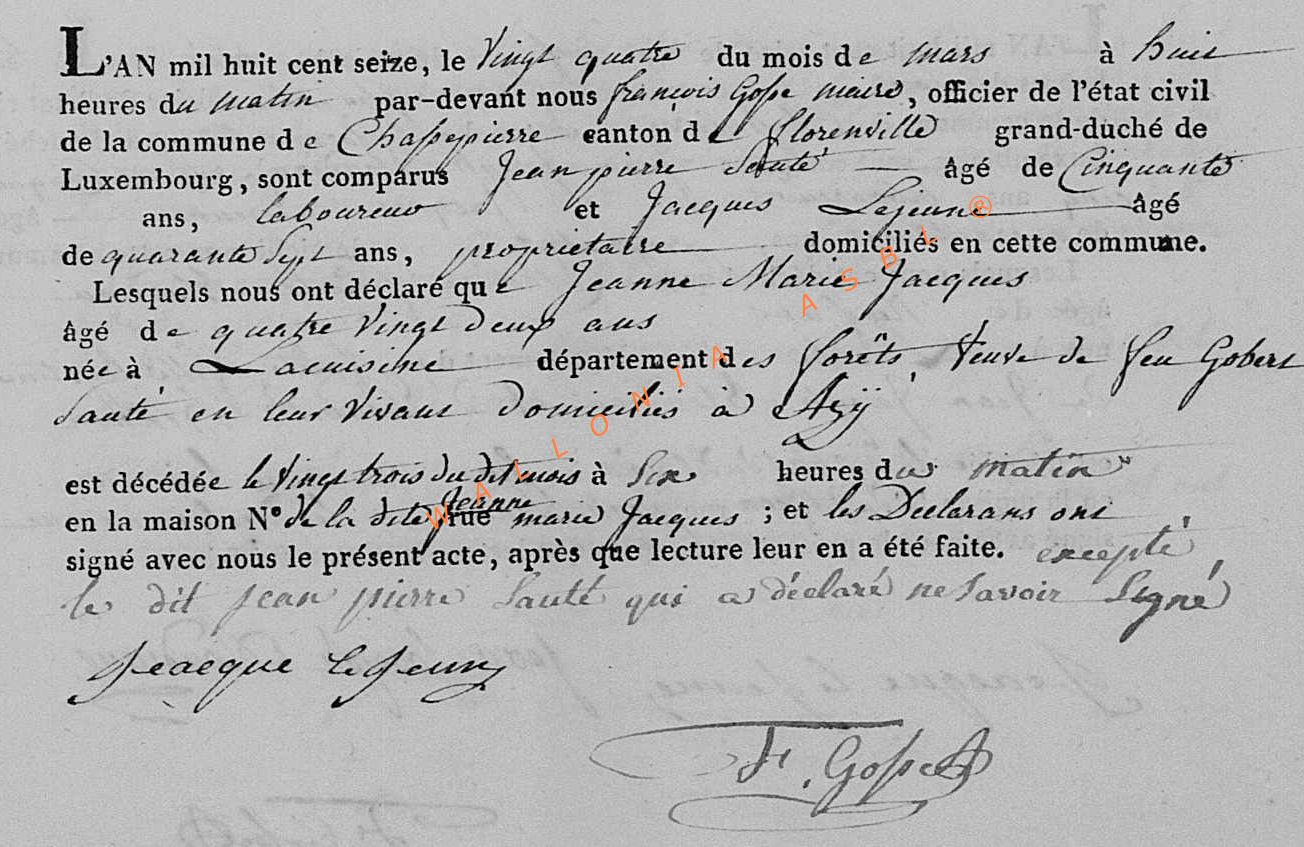 L'AN mil huit cent seize, le Vingt quatre du mois de mars à huit
heures du matin par-devant nous françois Gosse maire, officier de l'état civil
de la commune de Chassepierre canton de florenville grand-duché de
Luxembourg, sont comparus Jean pierre Sauté âgé de Cinquante
ans, laboureur et Jacques Lejeune âgé
de quarante Sept ans, proprietaire domiciliés en cette commune.
Lesquels nous ont déclaré que Jeanne Marie Jacques
âgé de quatre Vingt deux ans
née à Lacuisine département des forêts, Veuve de feu Gobert
Sauté en leur Vivant Domiciliés à Azÿ
est décédée le Vingt trois du dit mois à Six heures du matin
en la maison N° de la dite Jeanne rue marie Jacques ; et les Declarans ont
signé avec nous le présent acte, après que lecture leur en a été faite. excepté
le dit jean pierre Sauté qui a déclaré ne Savoir Signé
Jeacque le Jeune
F. Gosse
WALLONIA ASBL ®